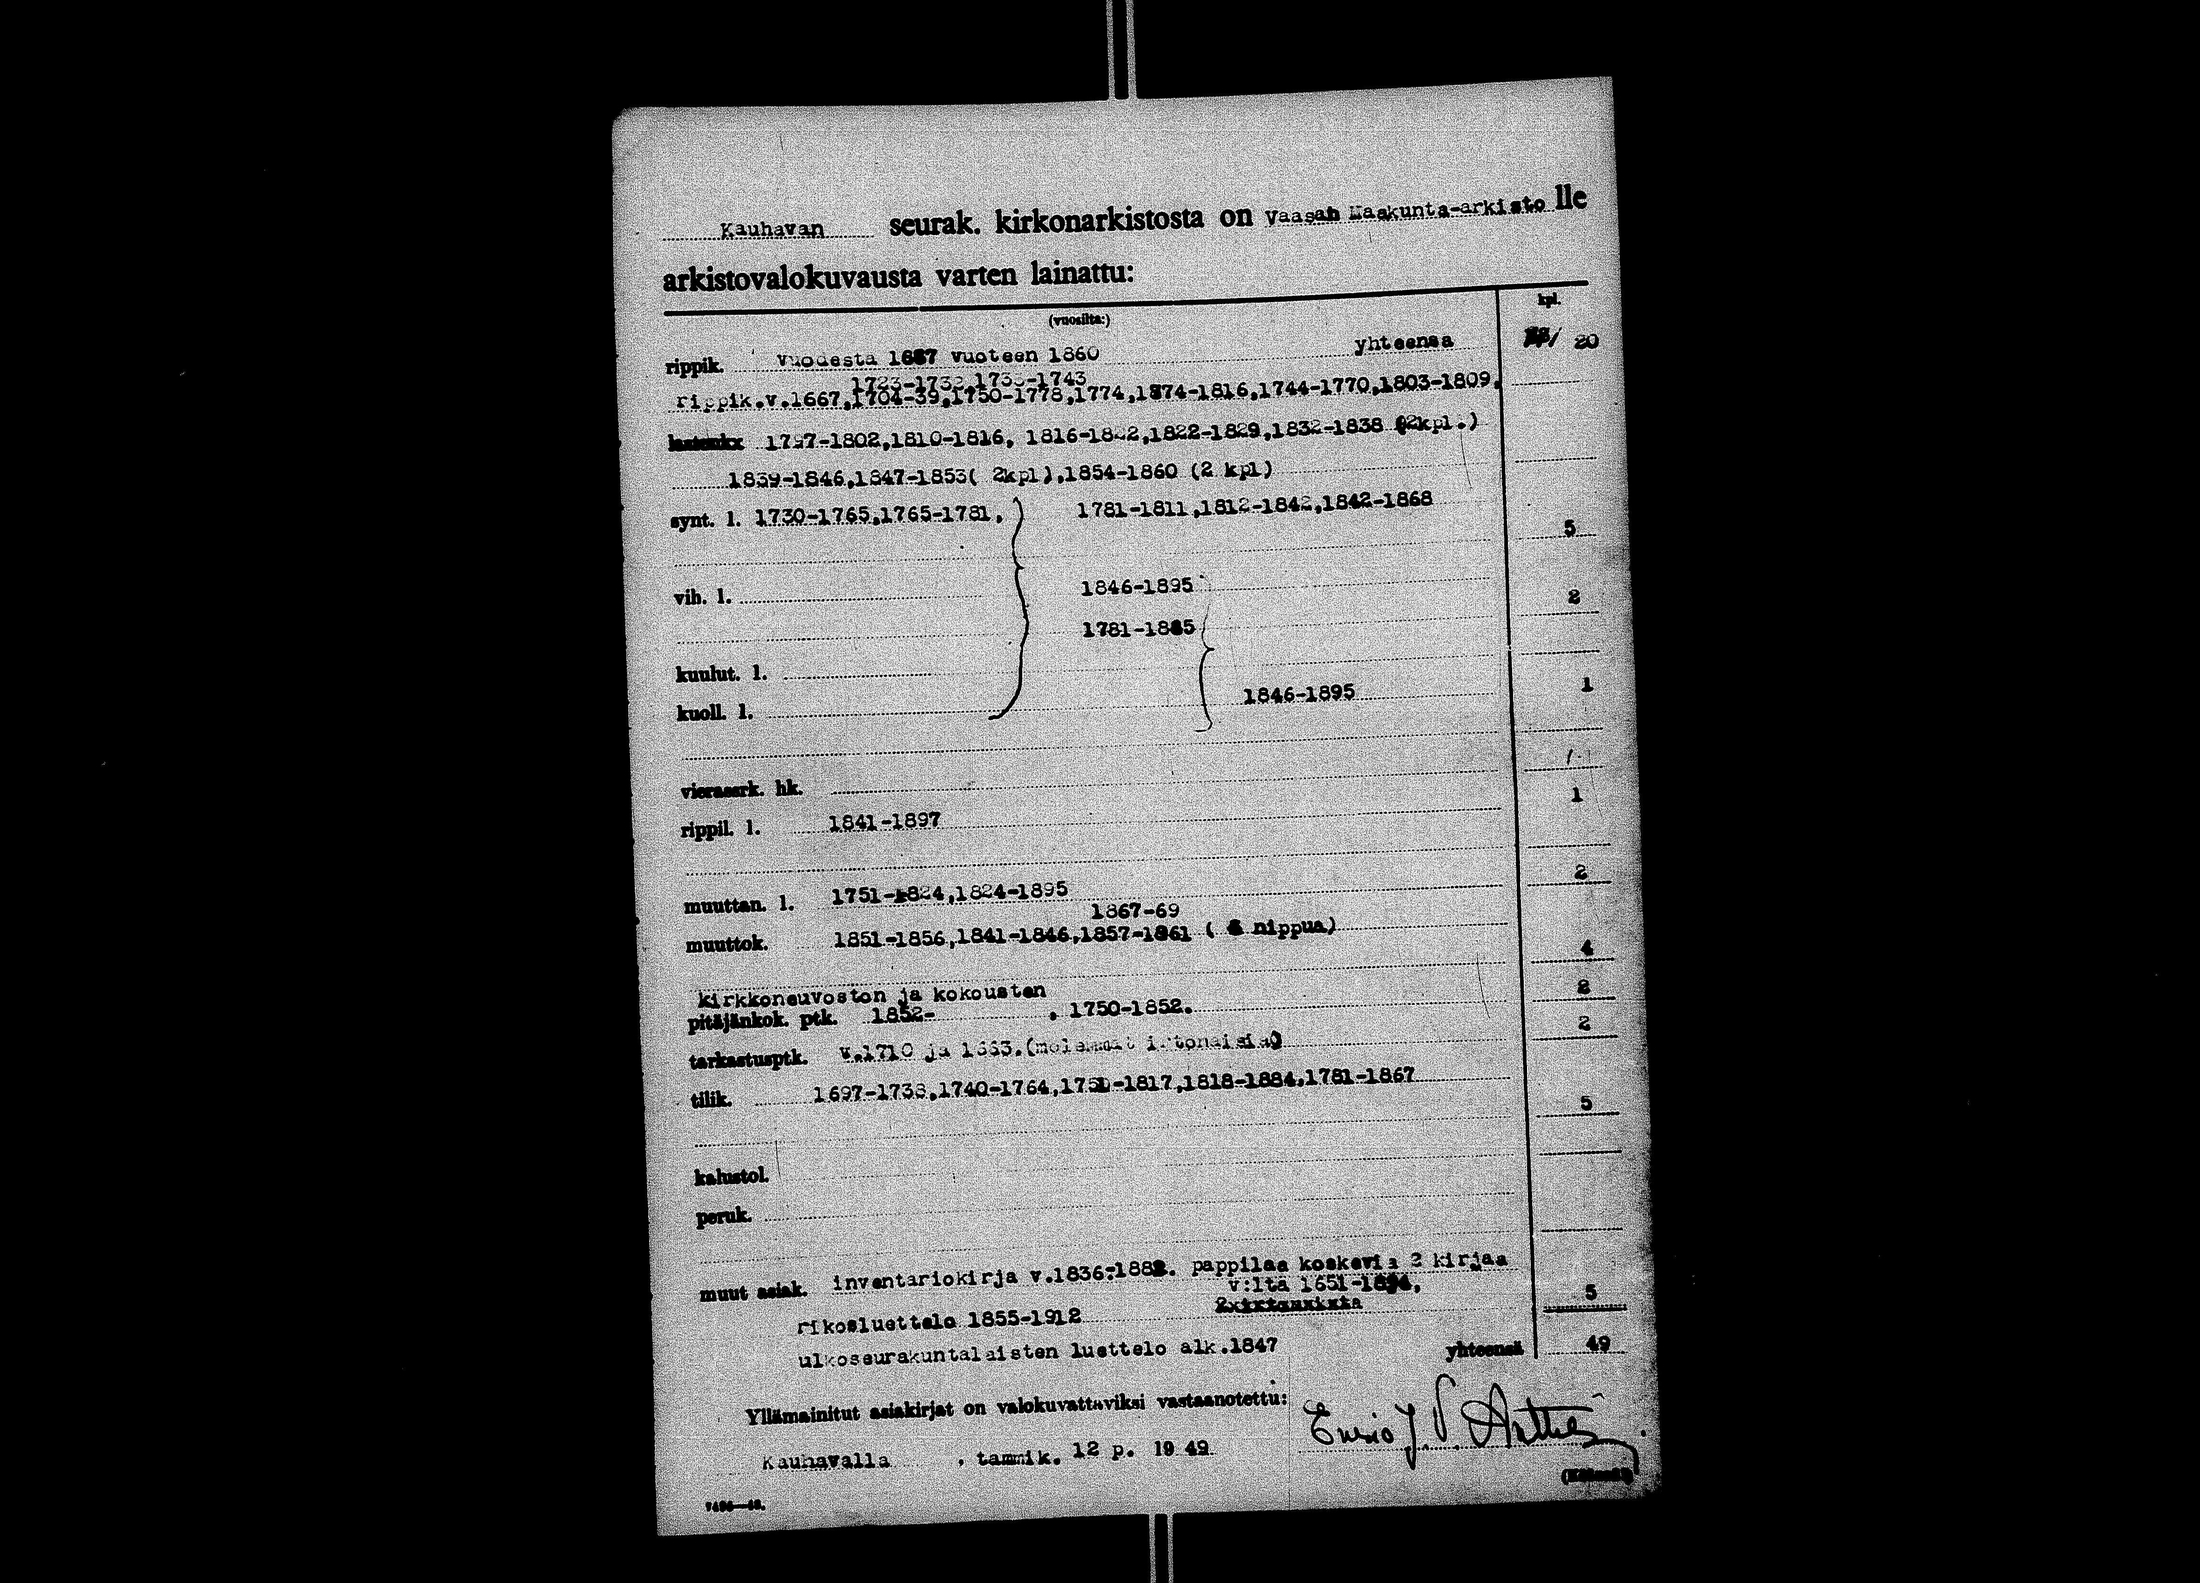 Kauhavan seurak. kirkonarkistosta on Vaasan Maakunta-arkisto lle
arkistovalokuvausta varten lainattu:
(vuosilta:) kpl.
rippik. Vuodesta 1667 vuoteen 1860 yhteensä 20
1723-1732,1733-1743
rippik.v.1667,1704-39,1750-1778,1774,1774-1816,1744-1770,1803-1809,
1797-1802,1810-1816, 1816-1822,1822-1829,1832-1838 (2kpl.)
1839-1846,1847-1853( 2kpl),1854-1860 (2 kpl)
synt. l. 1730-1765,1765-1781, 1781-1811,1812-1842,1842-1868
5
vih. l. 1846-1895 2
1781-1885
kuulut. l.
kuoll. l. 1846-1895 1
vierassrk. hk.
rippil. l. 1841-1897 1
muuttan. l. 1751-1824,1824-1895 2
1867-69
muuttok. 1851-1856,1841-1846,1857-1861 ( nippua)
4
kirkkoneuvoston ja kokousten 2
pitäjänkok. ptk. 1852- , 1750-1852.
tarkastusptk. v.1710 ja 1663.(molemmat irtonaisia) 2
tilik. 1697-1738,1740-1764,1751-1817,1818-1884,1781-1867
5
kalustol.
peruk.
muut asiak. inventariokirja v.1836-1882. pappilaa koskevia 2 kirjaa
v:lta 1651-
rikosluettelo 1855-1912 5
ulkoseurakuntalaisten luettelo alk.1847 yhteensä 49
Yllämainitut asiakirjat on valokuvattaviksi vastaanotettu:
Kauhavalla , tammik. 12 p. 19 49 Ensio J.